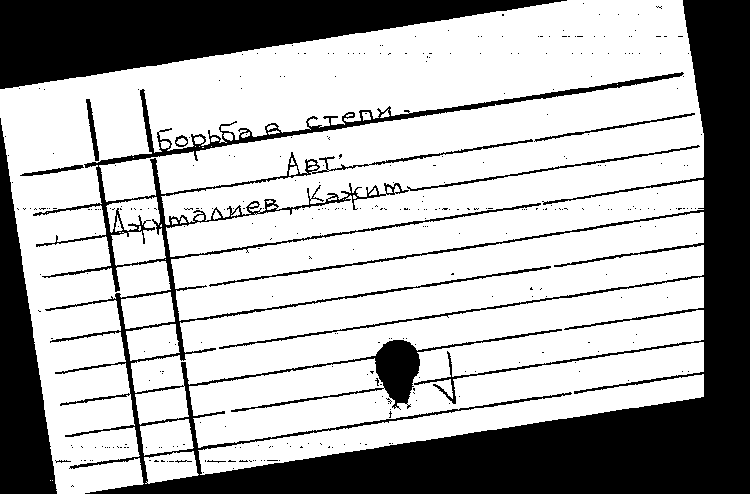 Борьба в степи.
Авт:
Джуmалиев, Кажит.